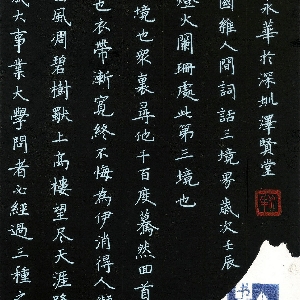 永華於深圳澤賢堂
國維人間詞話三境界歲次壬辰
燈火闌珊處此第三境也
境也衆裏尋他千百度驀然回首
也衣帶漸寬終不悔為伊消得人
風凋碧樹獨上高樓望尽天涯路
成大事業大學問者必經過三種之
书